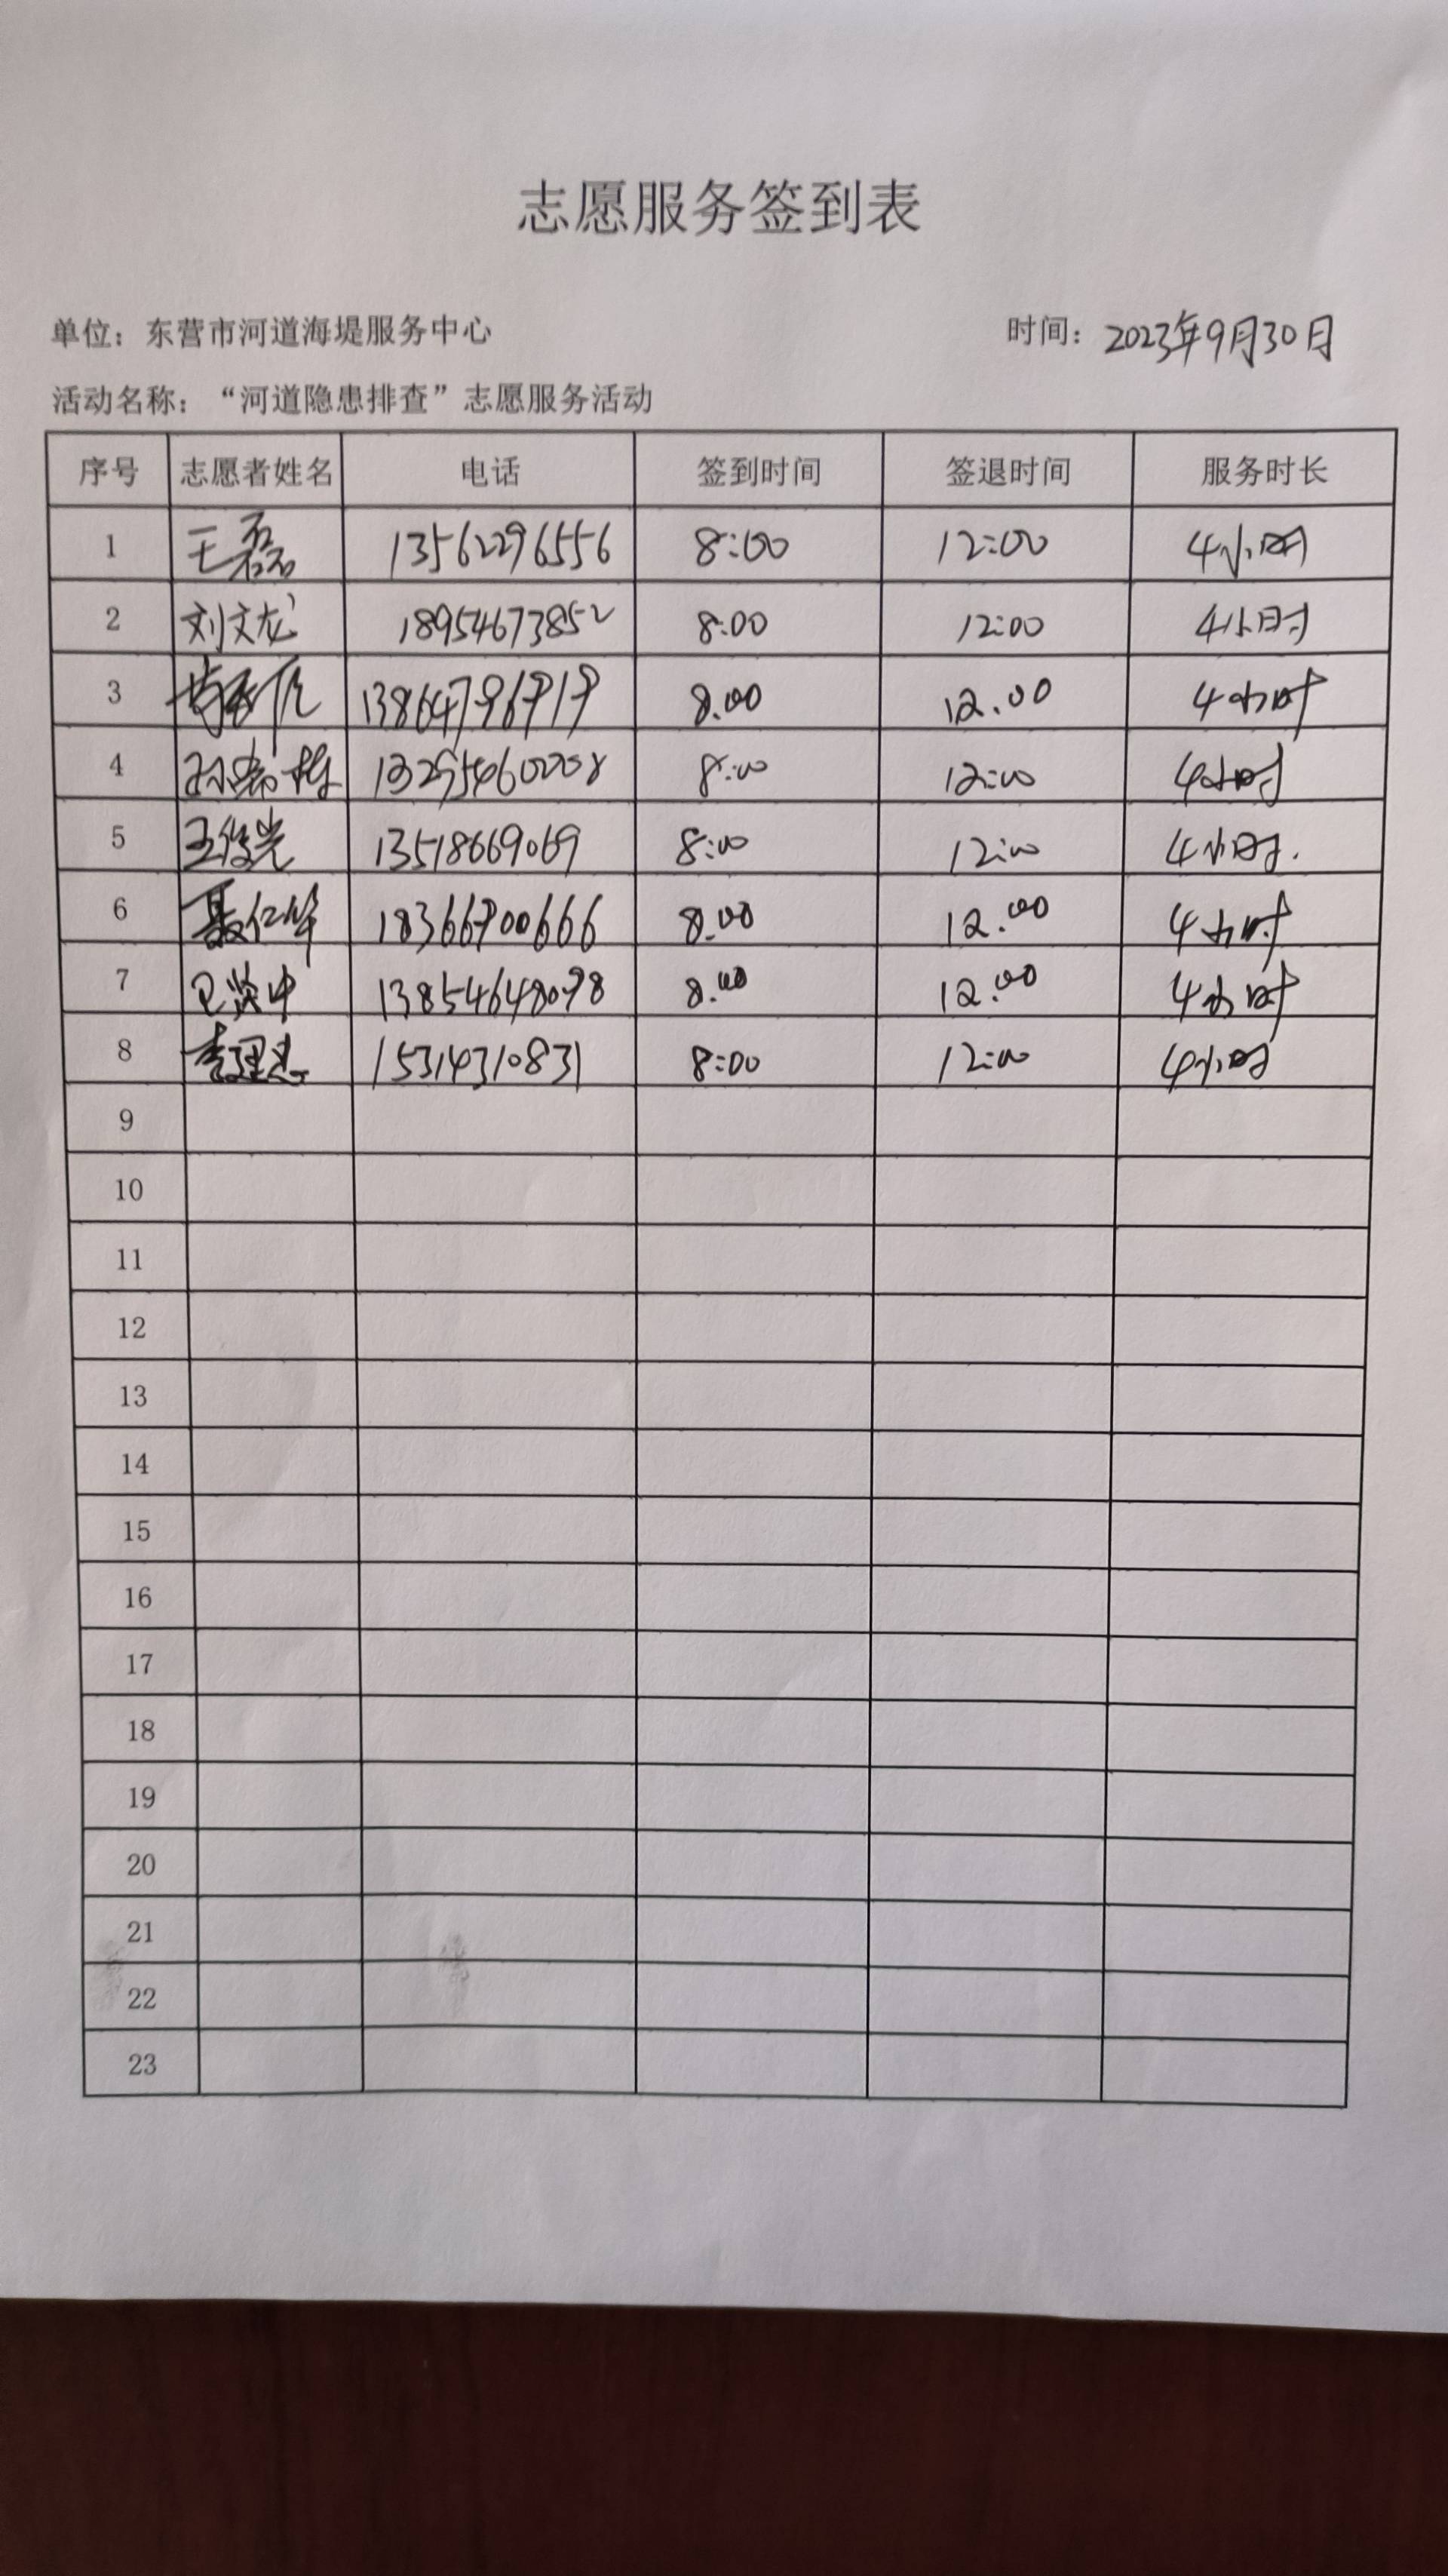 志愿服务签到表
单位：东营市河道海堤服务中心 时间：2023年9月30日
活动名称：“河道隐患排查”志愿服务活动
序号 志愿者姓名 电话 签到时间 签退时间 服务时长
1 王磊 13562296556 8:00 12:00 4小时
2 刘文龙 18954673852 8:00 12:00 4小时
3 8.00 12.00 4小时
4 8:00 12:00 4小时
5 王俊光 13518669069 8:00 12:00 4小时.
6 聂仁华 8.00 12.00 4小时
7 13854648098 8.00 12.00 4小时
8 15314310831 8:00 12:00 4小时
9
10
11
12
13
14
15
16
17
18
19
20
21
22
23